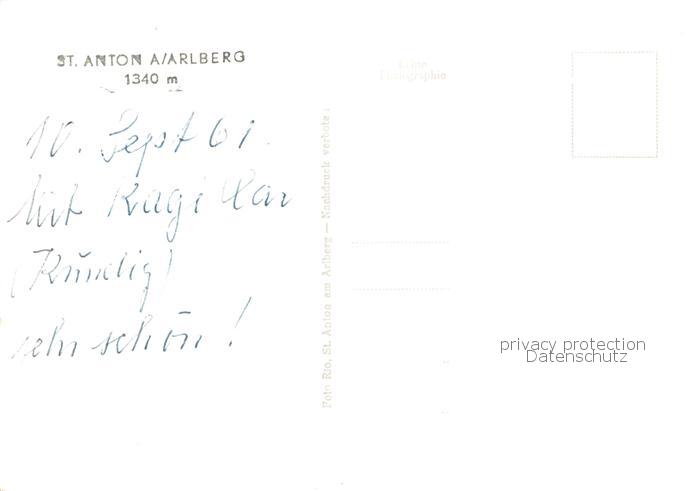 ST. ANTON A/ARLBERG
1340 m
10. Sept 61.
Mit Kagi Car
(Kündig)
sehr schön!
Echte
Photographie
Foto Rio, St. Anton am Arlberg — Nachdruck verboten
privacy protection
Datenschutz